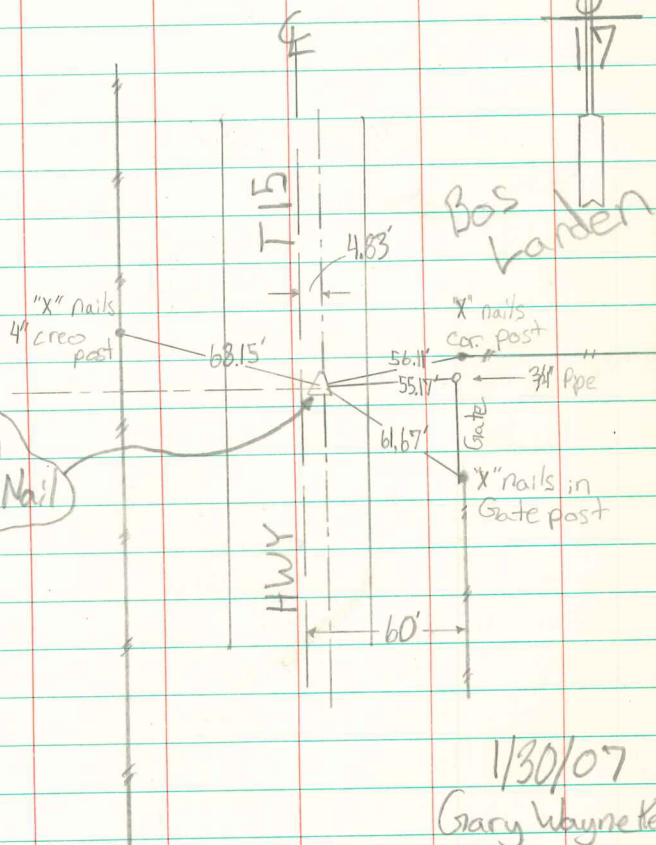 ℄
17
T 15
4.83'
Bos
Landen
"X" nails
4" creo
post
68.15'
"X" nails
cor. post
56.11'
55.17'
3/4" Pipe
Gate
61.67'
Nail
"X" nails in
Gate post
HWY
60'
1/30/07
Gary Wayne